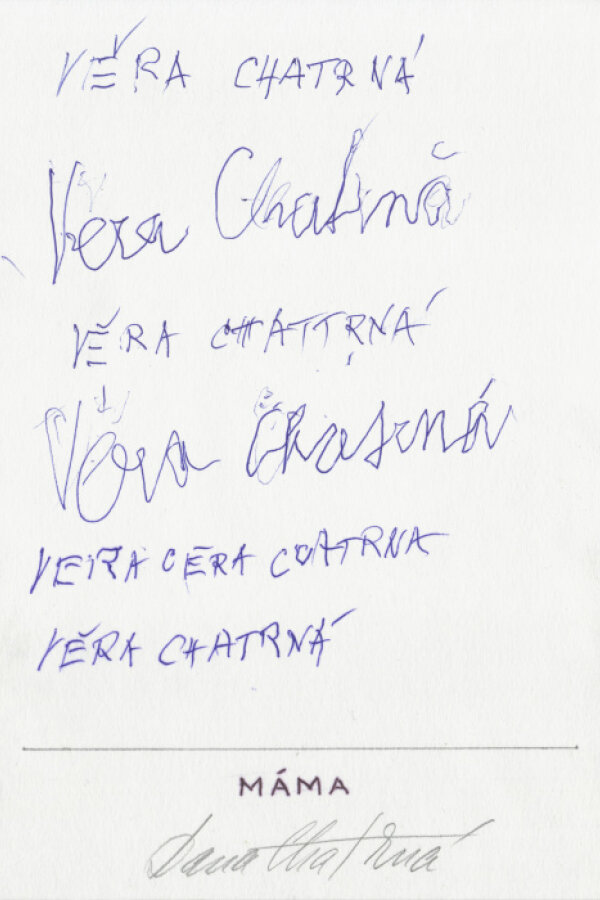 VĚRA CHATRNÁ
Věra Chatrná
VĚRA CHATTRNÁ
Věra Chatrná
VEIRA CERA COATRNA
VĚRA CHATRNÁ
MÁMA
Dana Chatrná